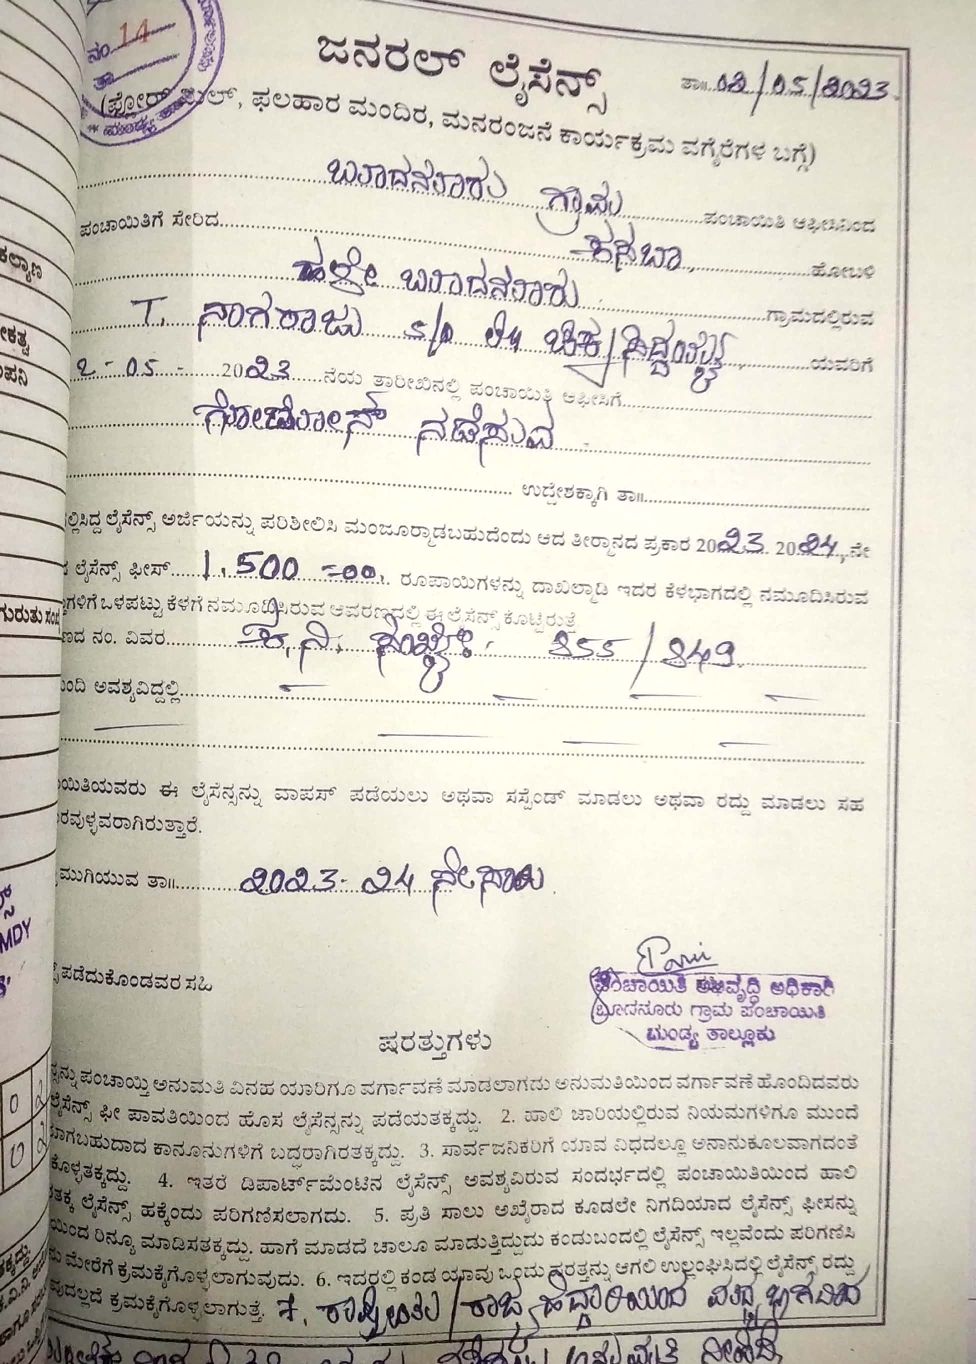 ನಂ. 14
ತಾ
ಜನರಲ್ ಲೈಸೆನ್ಸ್
ತಾ॥ 02/05/2023
(ಫ್ಲೋರ್ ಮಿಲ್, ಫಲಹಾರ ಮಂದಿರ, ಮನರಂಜನೆ ಕಾರ್ಯಕ್ರಮ ವಗೈರೆಗಳ ಬಗ್ಗೆ)
ಬೂದನೂರು ಗ್ರಾಮ ಪಂಚಾಯಿತಿ ಆಫೀಸಿನಿಂದ
ಪಂಚಾಯಿತಿಗೆ ಸೇರಿದ ಕಸಬಾ, ಹೋಬಳಿ
ಹಳೇ ಬೂದನೂರು ಗ್ರಾಮದಲ್ಲಿರುವ
T. ನಾಗರಾಜು S/o ಲೇ ಚಿಕ್ಕಸಿದ್ದಯ್ಯ ಯವರಿಗೆ
2-05- 2023 ನೆಯ ತಾರೀಖಿನಲ್ಲಿ ಪಂಚಾಯಿತಿ ಆಫೀಸಿಗೆ
ಗೋಡೋನ್ ನಡೆಸುವ
ಉದ್ದೇಶಕ್ಕಾಗಿ ತಾ॥
ಲ್ಲಿಸಿದ್ದ ಲೈಸೆನ್ಸ್ ಅರ್ಜಿಯನ್ನು ಪರಿಶೀಲಿಸಿ ಮಂಜೂರ್ಮಾಡಬಹುದೆಂದು ಆದ ತೀರ್ಮಾನದ ಪ್ರಕಾರ 2023. 2024, ನೇ
ಲೈಸೆನ್ಸ್ ಫೀಸ್ 1,500=00 ರೂಪಾಯಿಗಳನ್ನು ದಾಖಲ್ಮಾಡಿ ಇದರ ಕೆಳಭಾಗದಲ್ಲಿ ನಮೂದಿಸಿರುವ
ಗಳಿಗೆ ಒಳಪಟ್ಟು ಕೆಳಗೆ ನಮೂದಿಸಿರುವ ಆವರಣದಲ್ಲಿ ಈ ಲೈಸೆನ್ಸ್ ಕೊಟ್ಟಿರುತ್ತೆ
ಣದ ನಂ. ವಿವರ 355/349.
ಂದಿ ಅವಶ್ಯವಿದ್ದಲ್ಲಿ
ಯಿತಿಯವರು ಈ ಲೈಸೆನ್ಸನ್ನು ವಾಪಸ್ ಪಡೆಯಲು ಅಥವಾ ಸಸ್ಪೆಂಡ್ ಮಾಡಲು ಅಥವಾ ರದ್ದು ಮಾಡಲು ಸಹ
ರವುಳ್ಳವರಾಗಿರುತ್ತಾರೆ.
ಮುಗಿಯುವ ತಾ॥ 2023-24 ನೇ ಸಾಲು
ಪಡೆದುಕೊಂಡವರ ಸಹಿ
ಪಂಚಾಯಿತಿ ಅಭಿವೃದ್ಧಿ ಅಧಿಕಾರಿ
ಬೂದನೂರು ಗ್ರಾಮ ಪಂಚಾಯಿತಿ
ಮಂಡ್ಯ ತಾಲ್ಲೂಕು
ಷರತ್ತುಗಳು
ನ್ನು ಪಂಚಾಯ್ತಿ ಅನುಮತಿ ವಿನಹ ಯಾರಿಗೂ ವರ್ಗಾವಣೆ ಮಾಡಲಾಗದು ಅನುಮತಿಯಿಂದ ವರ್ಗಾವಣೆ ಹೊಂದಿದವರು
ಲೈಸೆನ್ಸ್ ಫೀ ಪಾವತಿಯಿಂದ ಹೊಸ ಲೈಸೆನ್ಸನ್ನು ಪಡೆಯತಕ್ಕದ್ದು. 2. ಹಾಲಿ ಜಾರಿಯಲ್ಲಿರುವ ನಿಯಮಗಳಿಗೂ ಮುಂದೆ
ಬಹುದಾದ ಕಾನೂನುಗಳಿಗೆ ಬದ್ಧರಾಗಿರತಕ್ಕದ್ದು. 3. ಸಾರ್ವಜನಿಕರಿಗೆ ಯಾವ ವಿಧದಲ್ಲೂ ಅನಾನುಕೂಲವಾಗದಂತೆ
ಕೊಳ್ಳತಕ್ಕದ್ದು. 4. ಇತರೆ ಡಿಪಾರ್ಟ್‌ಮೆಂಟಿನ ಲೈಸೆನ್ಸ್ ಅವಶ್ಯವಿರುವ ಸಂದರ್ಭದಲ್ಲಿ ಪಂಚಾಯಿತಿಯಿಂದ ಹಾಲಿ
ತಕ್ಕ ಲೈಸೆನ್ಸ್ ಹಕ್ಕೆಂದು ಪರಿಗಣಿಸಲಾಗದು. 5. ಪ್ರತಿ ಸಾಲು ಅಖೈರಾದ ಕೂಡಲೇ ನಿಗದಿಯಾದ ಲೈಸೆನ್ಸ್ ಫೀಸನ್ನು
ಯಿಂದ ರಿನ್ಯೂ ಮಾಡಿಸತಕ್ಕದ್ದು. ಹಾಗೆ ಮಾಡದೆ ಚಾಲೂ ಮಾಡುತ್ತಿದ್ದುದು ಕಂಡುಬಂದಲ್ಲಿ ಲೈಸೆನ್ಸ್ ಇಲ್ಲವೆಂದು ಪರಿಗಣಿಸಿ
ಮೇರೆಗೆ ಕ್ರಮಕೈಗೊಳ್ಳಲಾಗುವುದು. 6. ಇದರಲ್ಲಿ ಕಂಡ ಯಾವ ಒಂದು ಷರತ್ತನ್ನು ಆಗಲಿ ಉಲ್ಲಂಘಿಸಿದಲ್ಲಿ ಲೈಸೆನ್ಸ್ ರದ್ದು
ವುದಲ್ಲದೆ ಕ್ರಮಕೈಗೊಳ್ಳಲಾಗುತ್ತೆ. 7. ರಾಷ್ಟ್ರೀಯ/ರಾಜ್ಯ ಹೆದ್ದಾರಿಯಿಂದ